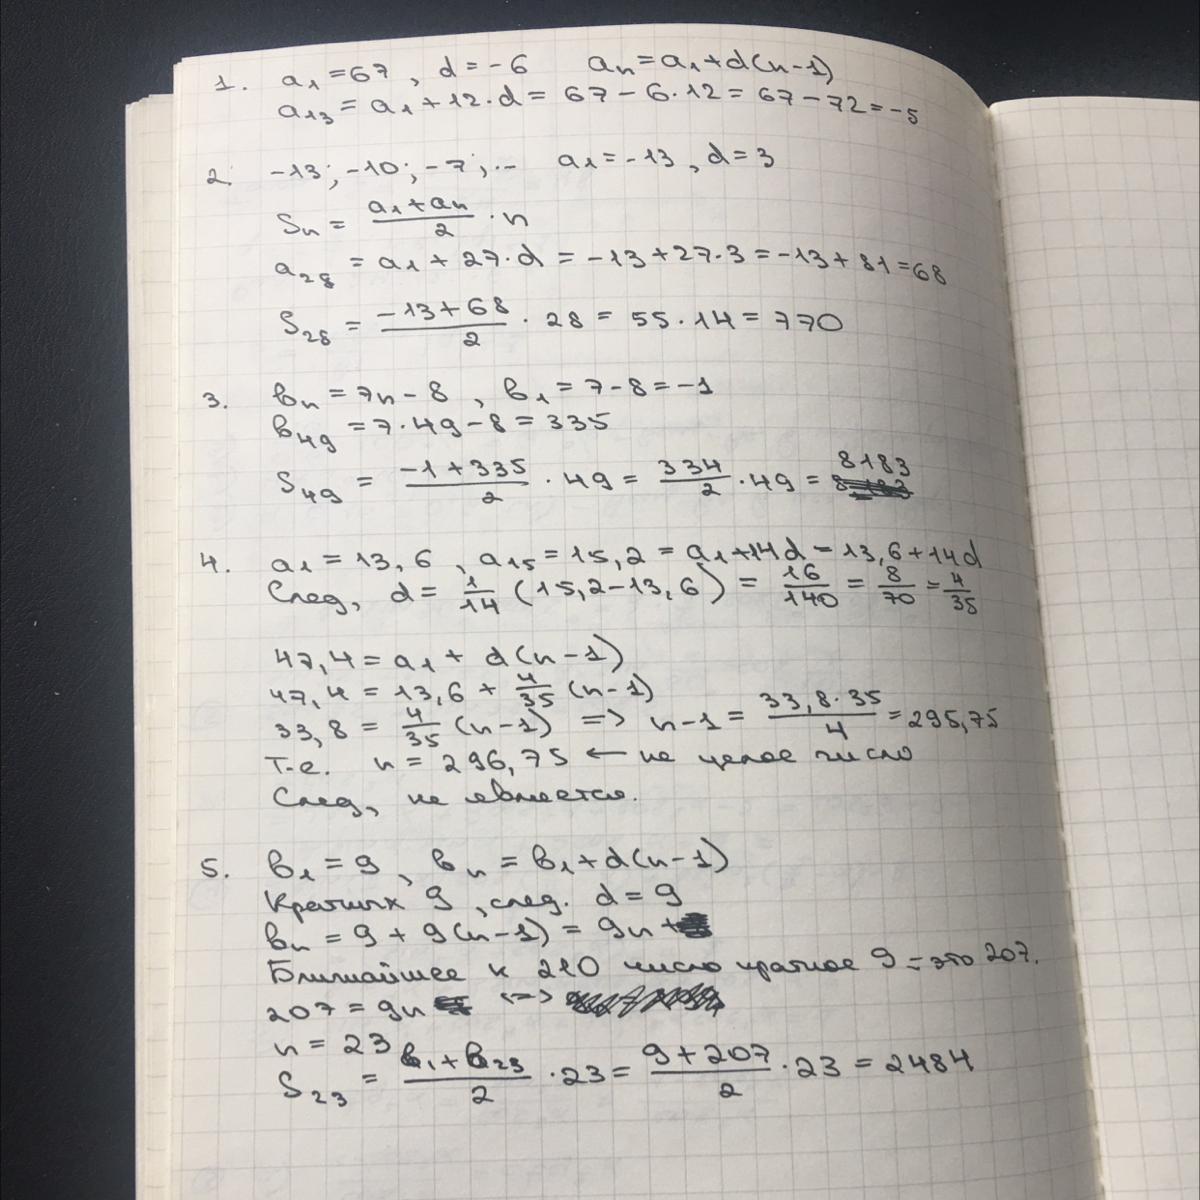 1. a₁ = 67, d = -6 aₙ = a₁ + d(n-1)
a₁₃ = a₁ + 12·d = 67 - 6·12 = 67 - 72 = -5
2. -13; -10; -7; ... a₁ = -13, d = 3
Sₙ = (a₁ + aₙ)/2 · n
a₂₈ = a₁ + 27·d = -13 + 27·3 = -13 + 81 = 68
S₂₈ = (-13 + 68)/2 · 28 = 55·14 = 770
3. bₙ = 7n - 8, b₁ = 7 - 8 = -1
b₄₉ = 7·49 - 8 = 335
S₄₉ = (-1 + 335)/2 · 49 = 334/2 · 49 = 8183
4. a₁ = 13,6, a₁₅ = 15,2 = a₁ + 14d = 13,6 + 14d
След, d = 1/14 (15,2 - 13,6) = 16/140 = 8/70 = 4/35
47,4 = a₁ + d(n-1)
47,4 = 13,6 + 4/35 (n-1)
33,8 = 4/35 (n-1) => n-1 = (33,8·35)/4 = 295,75
т.е. n = 296,75 ← не целое число
След, не является.
5. b₁ = 9, bₙ = b₁ + d(n-1)
Кратных 9, след. d = 9
bₙ = 9 + 9(n-1) = 9n
Ближайшее к 210 число кратное 9 = это 207.
207 = 9n <=>
n = 23
S₂₃ = (b₁ + b₂₃)/2 · 23 = (9 + 207)/2 · 23 = 2484